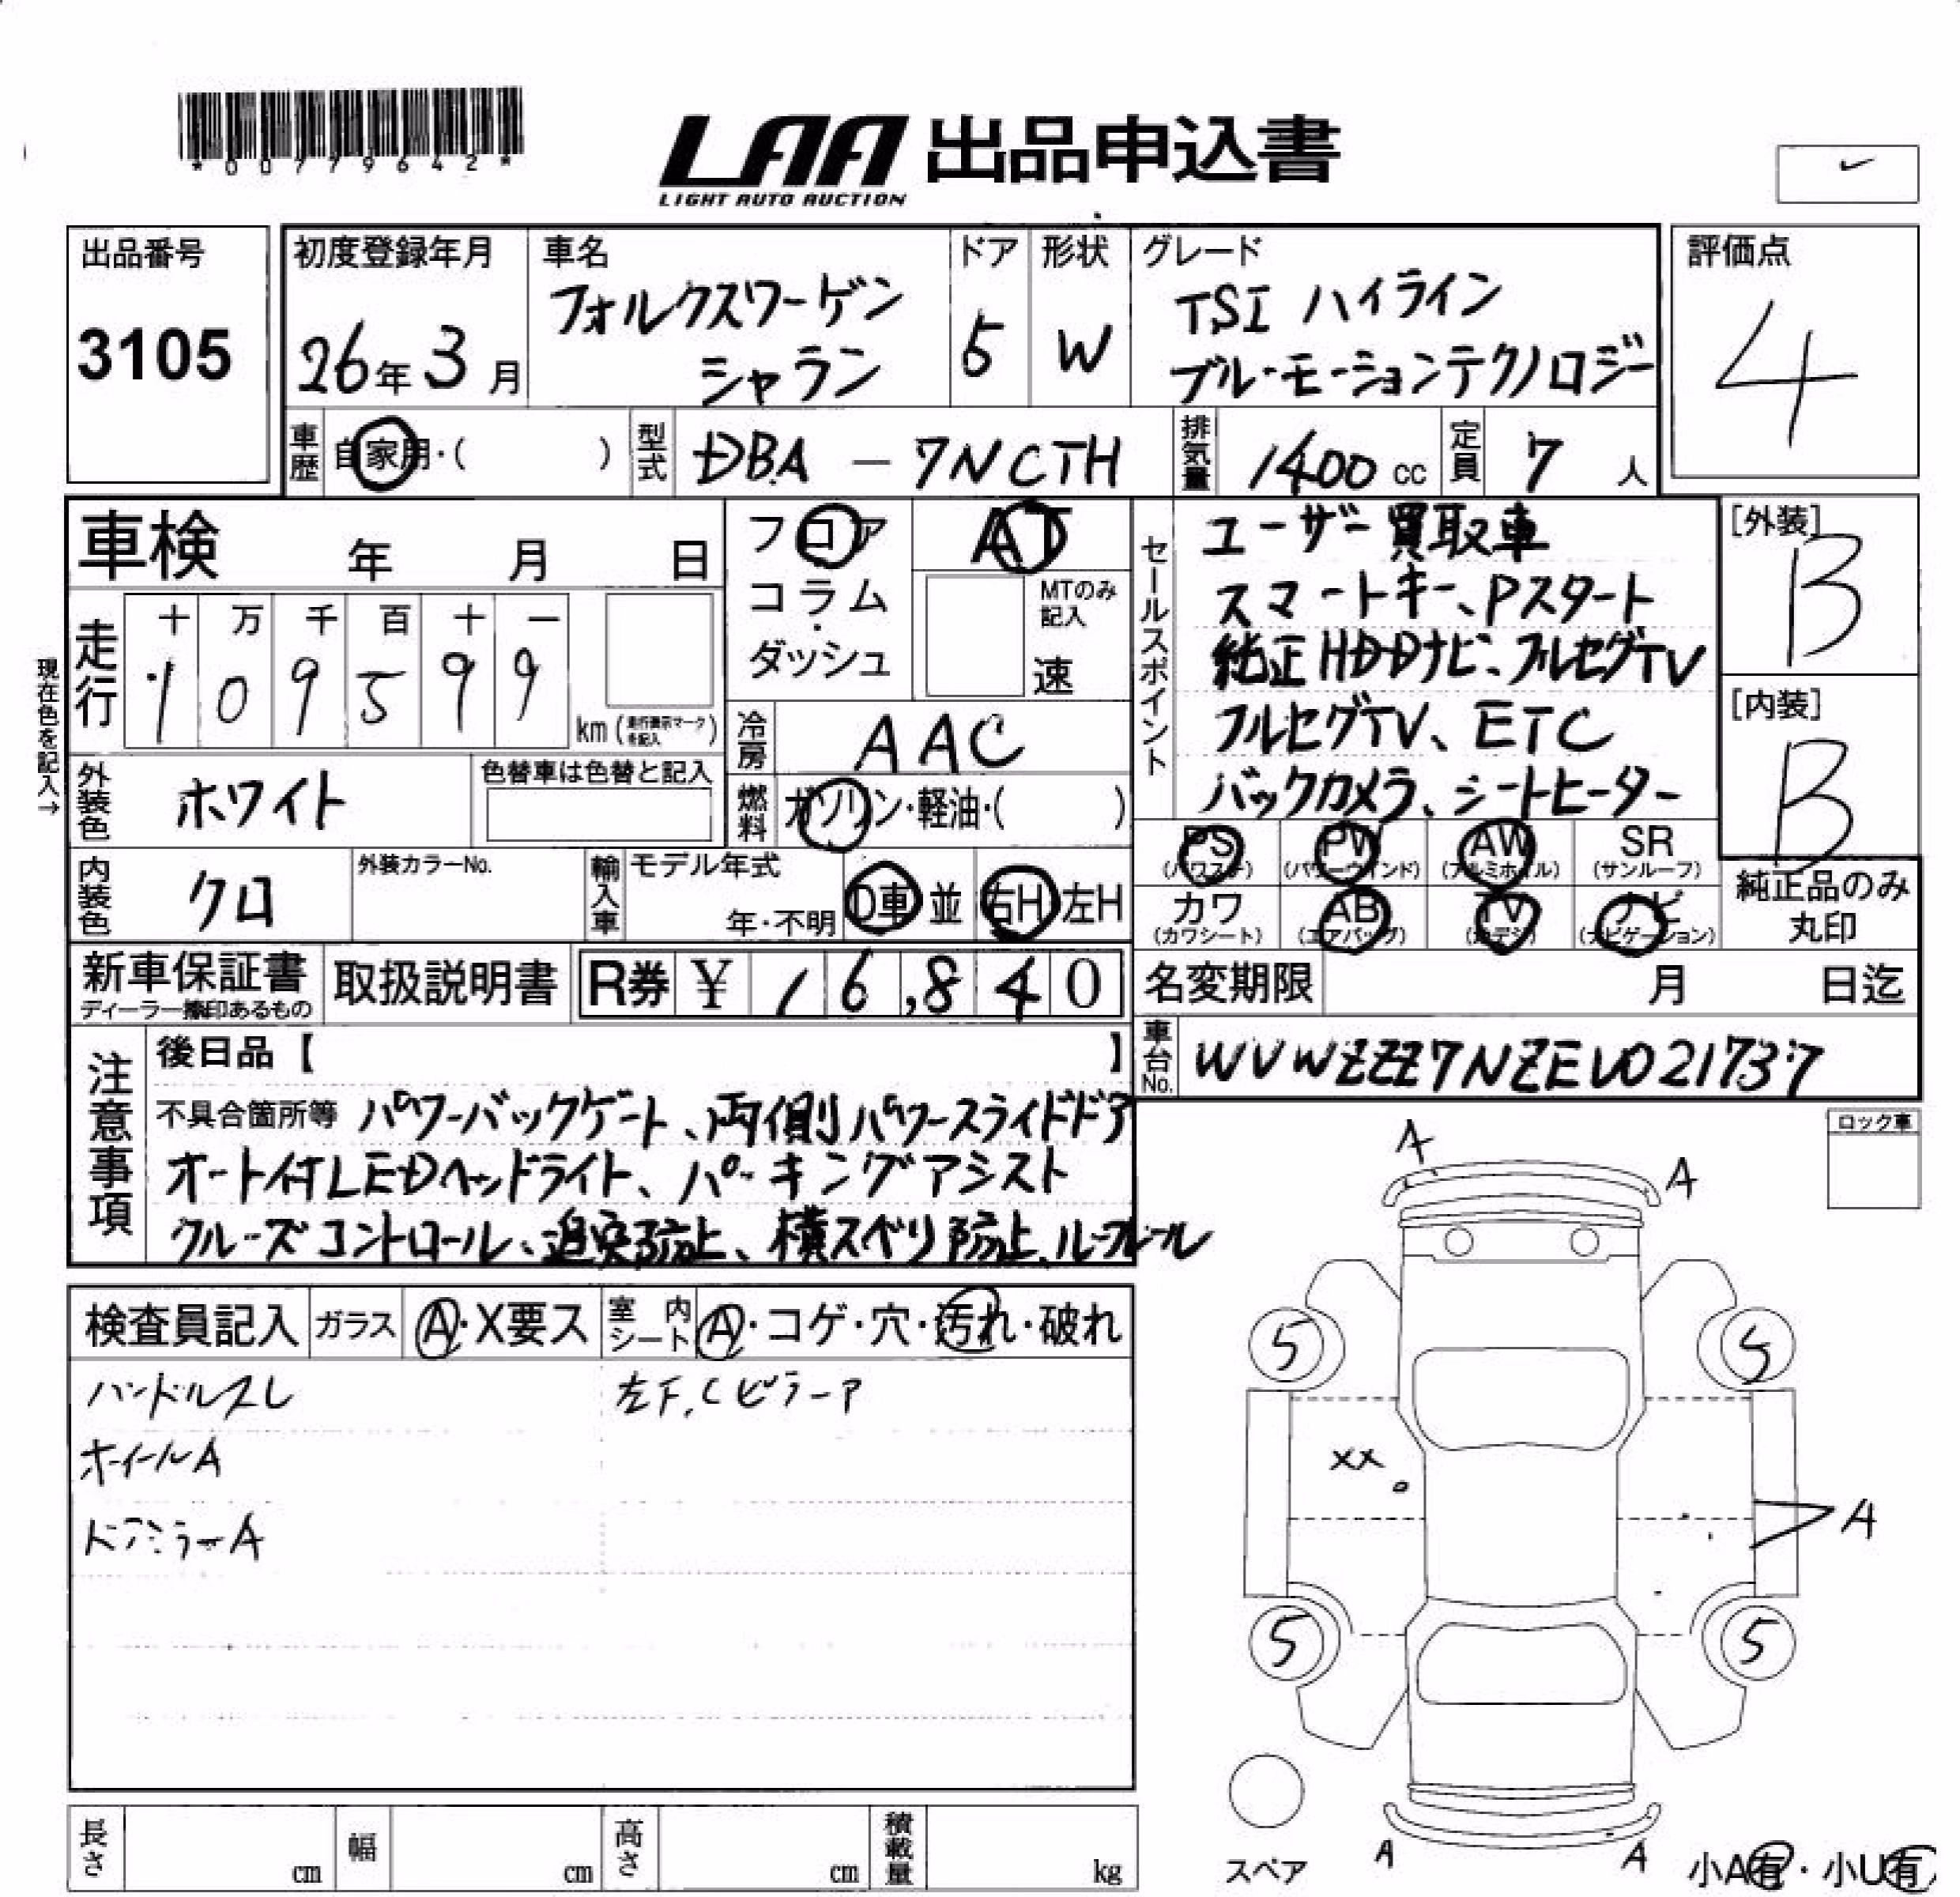 *00779642*
LAA 出品申込書
LIGHT AUTO AUCTION
出品番号
3105
初度登録年月
26年3月
車名
フォルクスワーゲン
シャラン
ドア
5
形状
W
グレード
TSI ハイライン
ブルーモーションテクノロジー
評価点
4
車歴 自家用・( )
型式 DBA - 7NCTH
排気量 1400 cc
定員 7 人
車検 年 月 日
フロア
コラム・
ダッシュ
AT
MTのみ
記入
速
現在色を記入→
走行
十 万 千 百 十 一
1 0 9 5 9 9
km (走行表示マークを記入)
冷房 AAC
外装色 ホワイト
色替車は色替と記入
燃料 ガソリン・軽油・( )
内装色 クロ
外装カラーNo.
輸入車
モデル年式
年・不明
D車 並
右H 左H
セールスポイント
ユーザー買取車
スマートキー、Pスタート
純正HDDナビ、フルセグTV
フルセグTV、ETC
バックカメラ、シートヒーター
[外装]
B
[内装]
B
PS PW AW SR
(パワステ) (パワーウインド) (アルミホイル) (サンルーフ)
カワ AB TV ナビ
(カワシート) (エアバッグ) (ナビゲーション)
純正品のみ
丸印
新車保証書
ディーラー捺印あるもの
取扱説明書
R券 ¥ 16,840
名変期限 月 日迄
車台No. WVWZZZ7NZEV021737
注意事項
後日品【 】
不具合箇所等 パワーバックゲート、両側パワースライドドア
オート付LEDヘッドライト、パーキングアシスト
クルーズコントロール、追突防止、横スベリ防止、ルーフレール
ロック車
検査員記入
ガラス Ⓐ・X要ス
室内シート Ⓐ・コゲ・穴・汚れ・破れ
ハンドルスレ
左F,Cピラーア
ホイールA
ドアミラーA
A
A
5
5
XX
A
5
5
スペア
A
A
小A有・小U有
長さ cm
幅 cm
高さ cm
積載量 kg